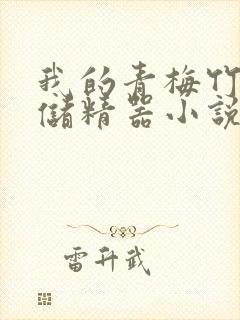 我的青梅竹
储精器小说
雷升武